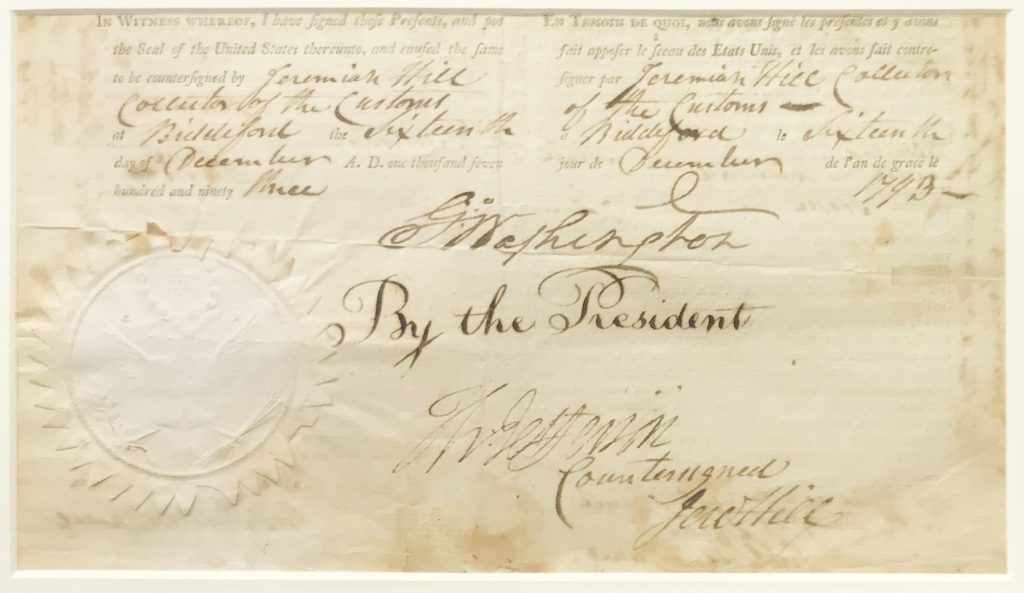 IN WITNESS WHEREOF, I have signed these Presents, and put
the Seal of the United States thereunto, and caused the same
to be countersigned by Jeremiah Hill
Collector of the Customs
at Biddeford the Sixteenth
day of December A. D. one thousand seven
hundred and ninety three
EN TEMOIN DE QUOI, nous avons signé les présentes et y avons
fait apposer le sceau des Etats Unis, et les avons fait contre-
signer par Jeremiah Hill Collector
of the Customs —
à Biddeford le Sixteenth
jour de December de l'an de grace le
1793 —
G:Washington
By the President
Th: Jefferson
Countersigned
Jere Hill